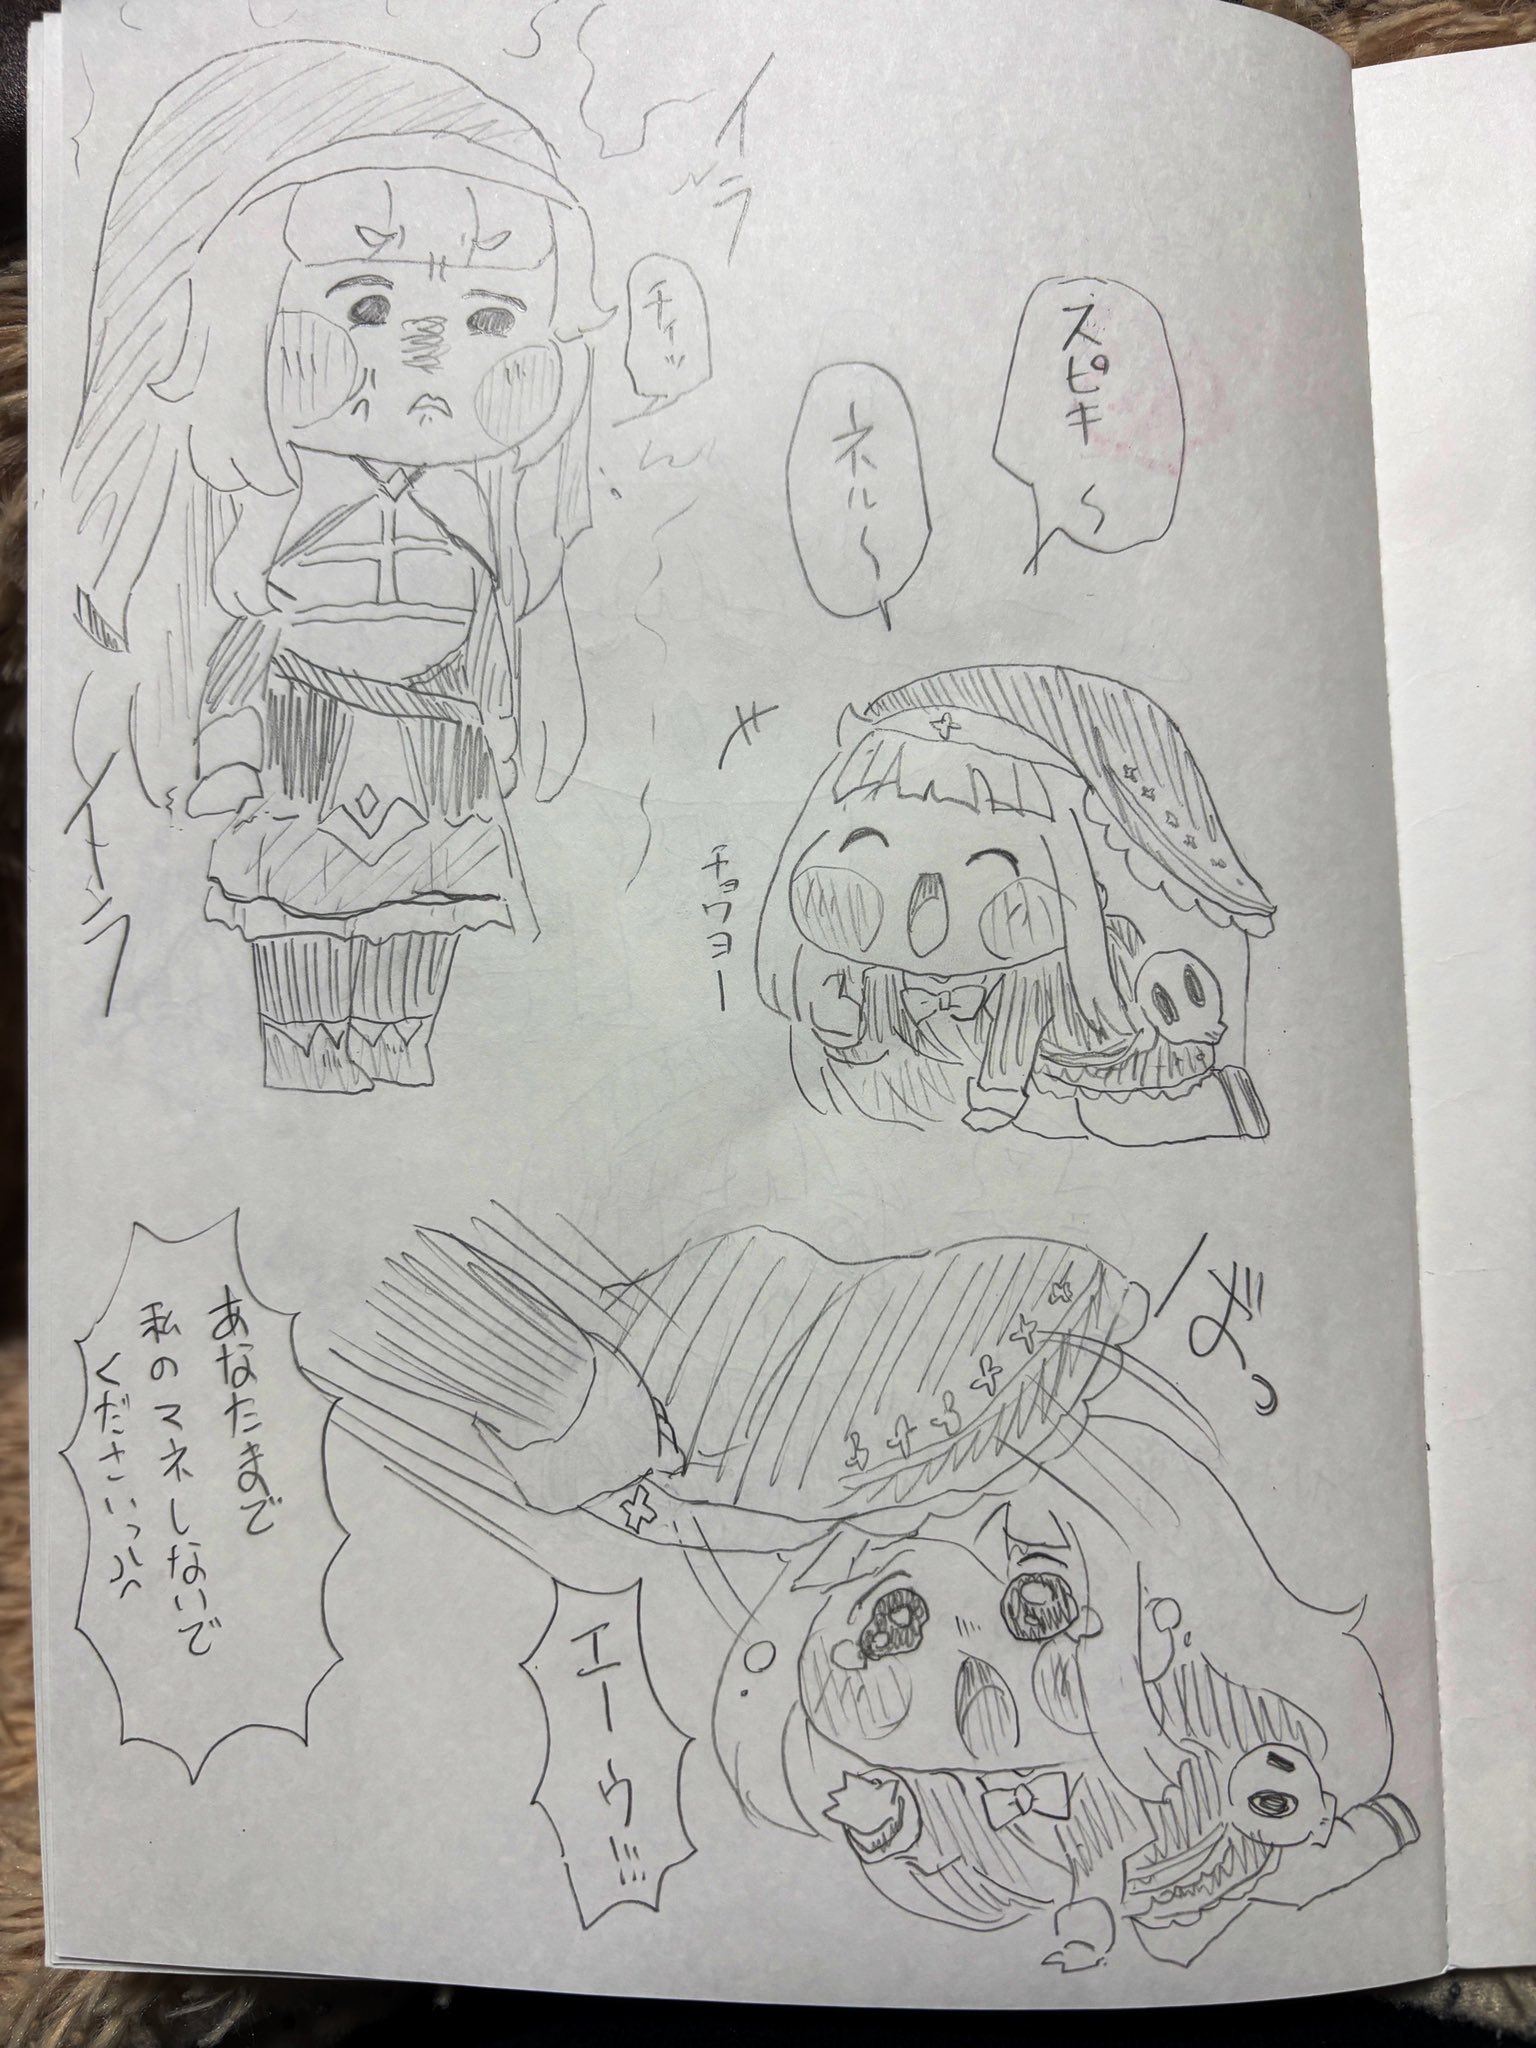 スピキ〜
ネル〜
イラ
チィッ
チョワヨー
イーラ
エーウ!!!
あなたまで
私のマネしないで
くださいっ!!